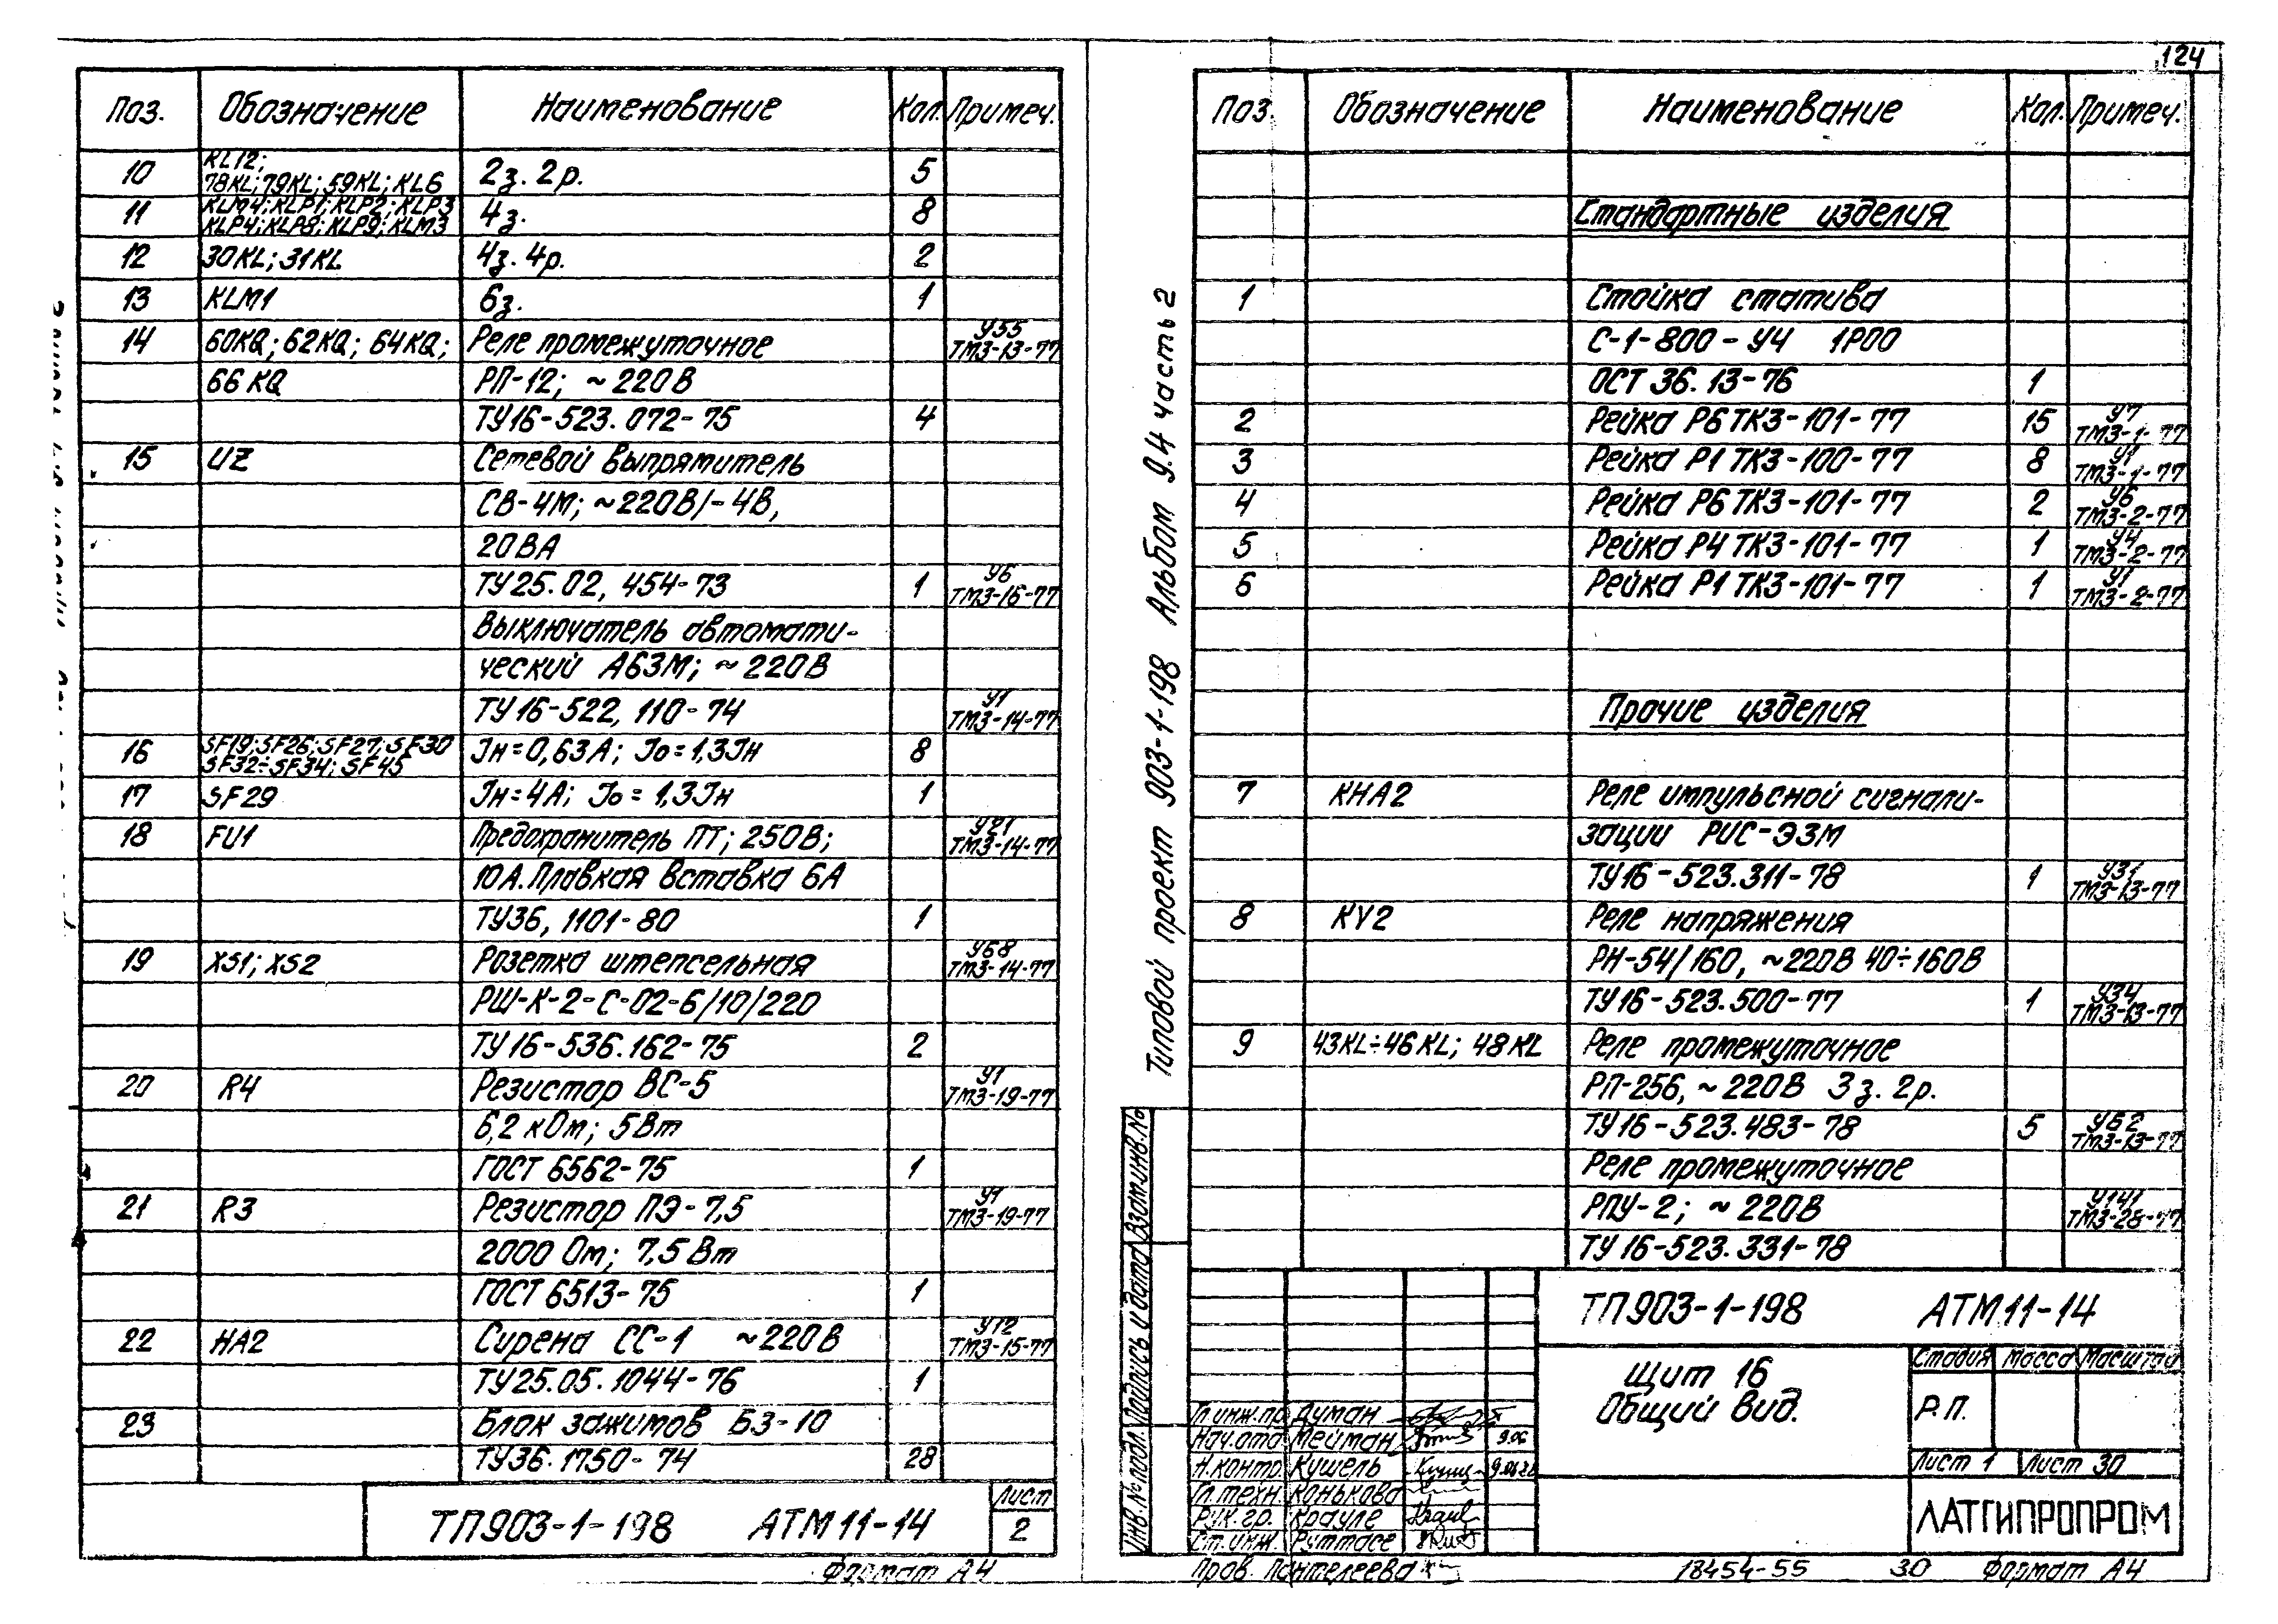 124
Поз. Обозначение Наименование Кол. Примеч.
10 KL12; 78KL; 79KL; 59KL; KL6 2з. 2р. 5
11 KLM4; KLP1; KLP2; KLP3 KLP4; KLP8; KLP9; KLM3 4з. 8
12 30KL; 31KL 4з. 4р. 2
13 KLM1 6з. 1
14 60KQ; 62KQ; 64KQ; Реле промежуточное У55 ТМ3-13-77
66KQ РП-12; ~220В
ТУ16-523.072-75 4
15 UZ Сетевой выпрямитель
СВ-4М; ~220В/-4В,
20ВА
ТУ25.02, 454-73 1 У6 ТМ3-16-77
Выключатель автомати-
ческий А63М; ~220В
ТУ16-522, 110-74 У1 ТМ3-14-77
16 SF19; SF26; SF27; SF30 SF32÷SF34; SF45 Jн=0,63А; Jо=1,3Jн 8
17 SF29 Jн=4А; Jо=1,3Jн 1
18 FU1 Предохранитель ПТ; 250В; У21 ТМ3-14-77
10А. Плавкая вставка 6А
ТУ36, 1101-80 1
19 XS1; XS2 Розетка штепсельная У68 ТМ3-14-77
РШ-К-2-С-02-6/10/220
ТУ16-536.162-75 2
20 R4 Резистор ВС-5 У1 ТМ3-19-77
6,2 кОм; 5Вт
ГОСТ 6562-75 1
21 R3 Резистор ПЭ-7,5 У1 ТМ3-19-77
2000 Ом; 7,5 Вт
ГОСТ 6513-75 1
22 HA2 Сирена СС-1 ~220В У12 ТМ3-15-77
ТУ25.05.1044-76 1
23 Блок зажимов БЗ-10
ТУ36.1750-74 28
ТП903-1-198 АТМ11-14 Лист 2
Формат А4
Типовой проект 903-1-198 Альбом 9.4 часть 2
Поз. Обозначение Наименование Кол. Примеч.
Стандартные изделия
1 Стойка статива
С-1-800-У4 1Р00
ОСТ 36.13-76 1
2 Рейка Р6 ТК3-101-77 15 У7 ТМ3-1-77
3 Рейка Р1 ТК3-100-77 8 У1 ТМ3-1-77
4 Рейка Р6 ТК3-101-77 2 У6 ТМ3-2-77
5 Рейка Р4 ТК3-101-77 1 У4 ТМ3-2-77
6 Рейка Р1 ТК3-101-77 1 У1 ТМ3-2-77
Прочие изделия
7 КНА2 Реле импульсной сигнали-
зации РИС-Э3М
ТУ16-523.311-78 1 У31 ТМ3-13-77
8 KV2 Реле напряжения
РН-54/160, ~220В 40÷160В
ТУ16-523.500-77 1 У34 ТМ3-13-77
9 43KL÷46KL; 48KL Реле промежуточное
РП-256, ~220В 3з. 2р.
ТУ16-523.483-78 5 У62 ТМ3-13-77
Реле промежуточное
РПУ-2; ~220В У141 ТМ3-28-77
ТУ16-523.331-78
Инв.№ подл. Подпись и дата Взам.инв.№
ТП903-1-198 АТМ11-14
Щит 16
Общий вид.
Стадия Масса Масштаб
Р.П.
Лист 1 Лист 30
ЛАТГИПРОПРОМ
Гл.инж.пр Думан
Нач.отд Мейман 9.06
Н.контр Кушель
Гл.техн. Конькова
Рук.гр. Крауле
Ст.инж. Руттасе
Пров. Пантелеева
18454-55 30 Формат А4